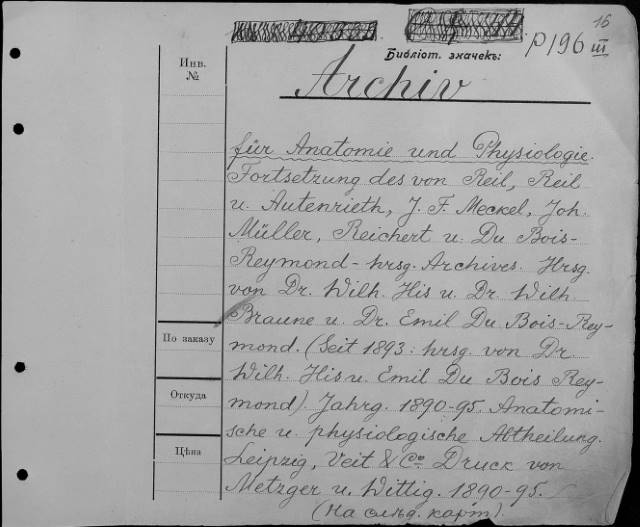 16
P196 III
Библіот. значекъ:
Инв.
№
Archiv
für Anatomie und Physiologie.
Fortsetzung des von Reil, Reil
u. Autenrieth, J. F. Meckel, Joh.
Müller, Reichert u. Du Bois-
Reymond-hrsg. Archives. Hrsg.
von Dr. Wilh. His u. Dr. Wilh.
Braune u. Dr. Emil Du Bois-Rey-
mond. (Seit 1893: hrsg. von Dr
Wilh. His u. Emil Du Bois Rey-
mond). Jahrg. 1890-95. Anatomi-
sche u. physiologische Abtheilung.
Leipzig, Veit & Co. Druck von
Metzger u. Wittig. 1890-95.
(На слѣд. карт).
По заказу
Откуда
Цѣна